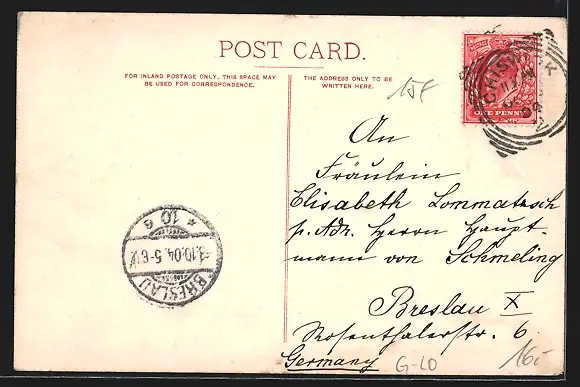 POST CARD.
FOR INLAND POSTAGE ONLY, THIS SPACE MAY
BE USED FOR CORRESPONDENCE.
THE ADDRESS ONLY TO BE
WRITTEN HERE.
15f
ONE PENNY
An
Fräulein
Elisabeth Lommatzsch
p. Adr. Herrn Haupt-
mann von Schmeling
Breslau X
Rosenthalerstr. 6
Germany
G-LO
16.-
BRESLAU
.10.04. 5-6
* 10 e